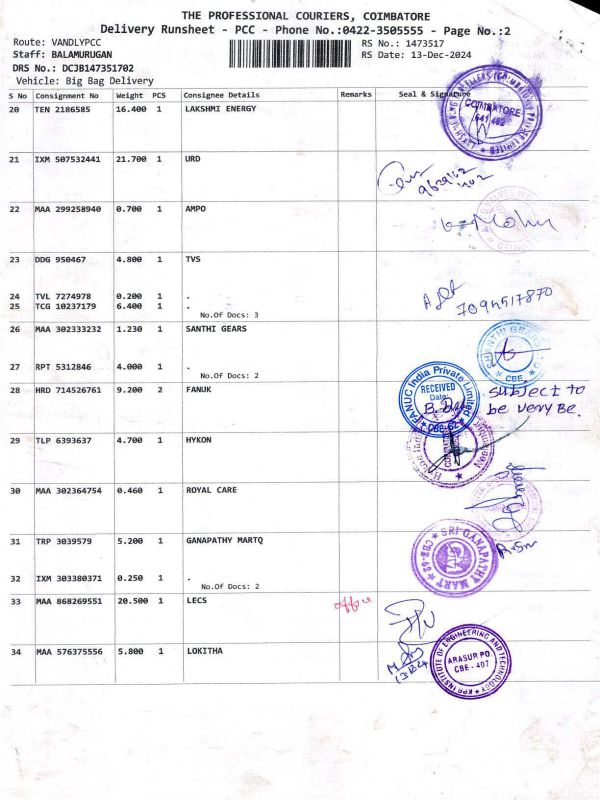 THE PROFESSIONAL COURIERS, COIMBATORE
Delivery Runsheet - PCC - Phone No.:0422-3505555 - Page No.:2
Route: VANDLYPCC
RS No.: 1473517
Staff: BALAMURUGAN
RS Date: 13-Dec-2024
DRS No.: DCJB147351702
Vehicle: Big Bag Delivery
S No Consignment No Weight PCS Consignee Details Remarks Seal & Signature
20 TEN 2186585 16.400 1 LAKSHMI ENERGY
COIMBATORE
641 402
21 IXM 507532441 21.700 1 URD
22 MAA 299258940 0.700 1 AMPO
Mohu
23 DDG 950467 4.800 1 TVS
24 TVL 7274978 0.200 1 .
25 TCG 10237179 6.400 1 .
No.Of Docs: 3
7094517870
26 MAA 302333232 1.230 1 SANTHI GEARS
SHANTHI GEARS
CBE.
27 RPT 5312846 4.000 1 .
No.Of Docs: 2
28 HRD 714526761 9.200 2 FANUK
FANUC India Private Limited
RECEIVED
Date:
CBE-62
subject to
be very Be.
29 TLP 6393637 4.700 1 HYKON
30 MAA 302364754 0.460 1 ROYAL CARE
31 TRP 3039579 5.200 1 GANAPATHY MARTQ
SRI GANAPATHY MART
CBE-62
32 IXM 303380371 0.250 1 .
No.Of Docs: 2
33 MAA 868269551 20.500 1 LECS
office
34 MAA 576375556 5.800 1 LOKITHA
KPR INSTITUTE OF ENGINEERING AND TECHNOLOGY
ARASUR PO.
CBE - 407